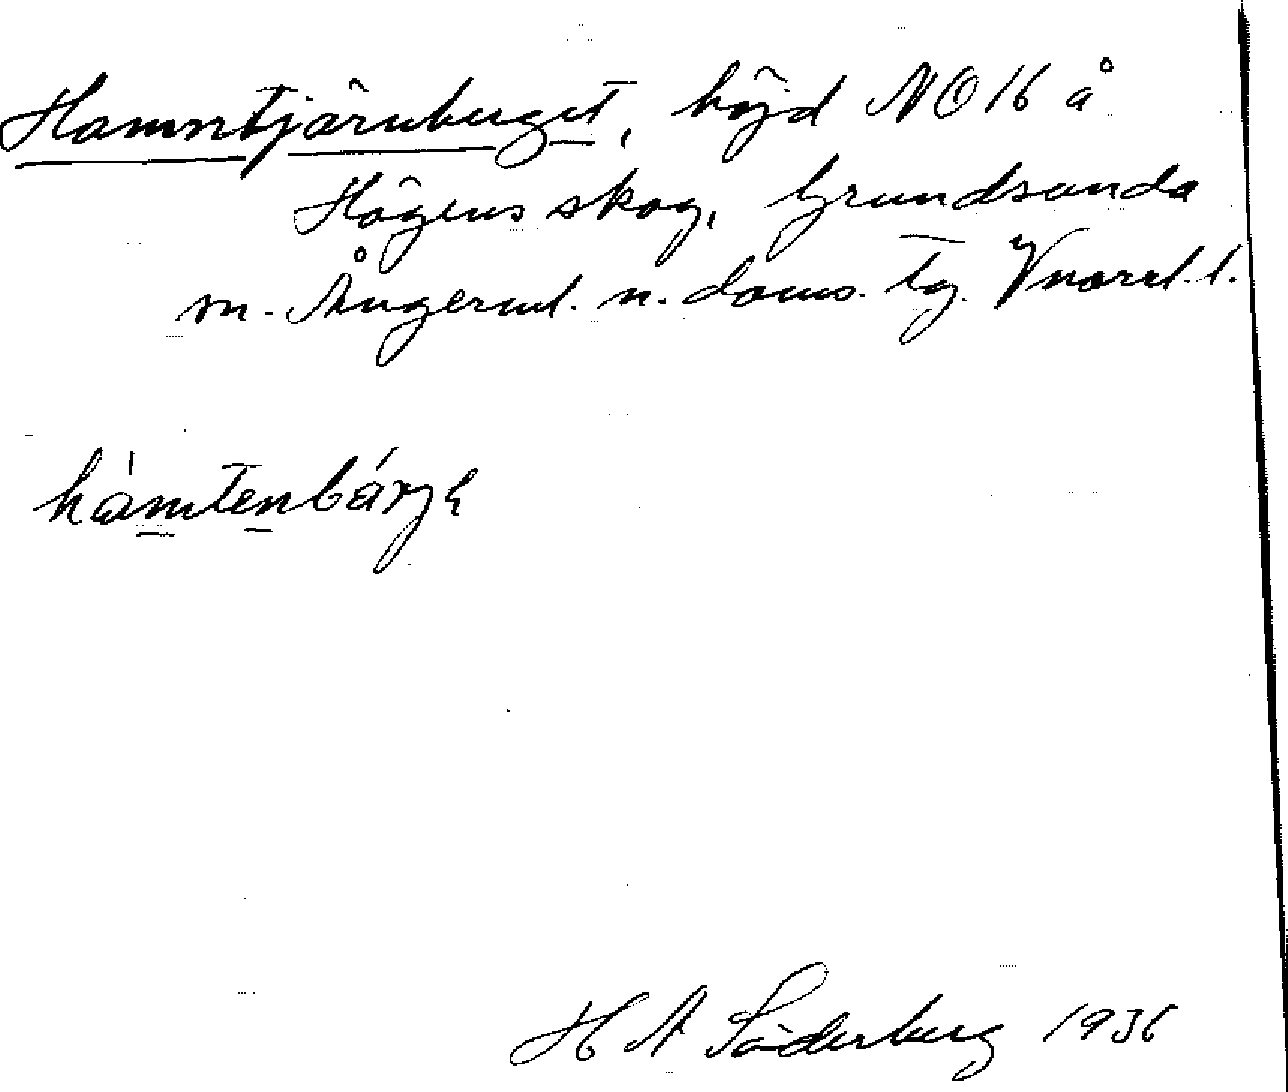 Hamntjärnberget, höjd NO 16 å
Högens skog, Grundsunda
sn. Ångerml. n. doms. tg. Vnorrl. l.
hàmtenbárję
H A Söderberg 1936